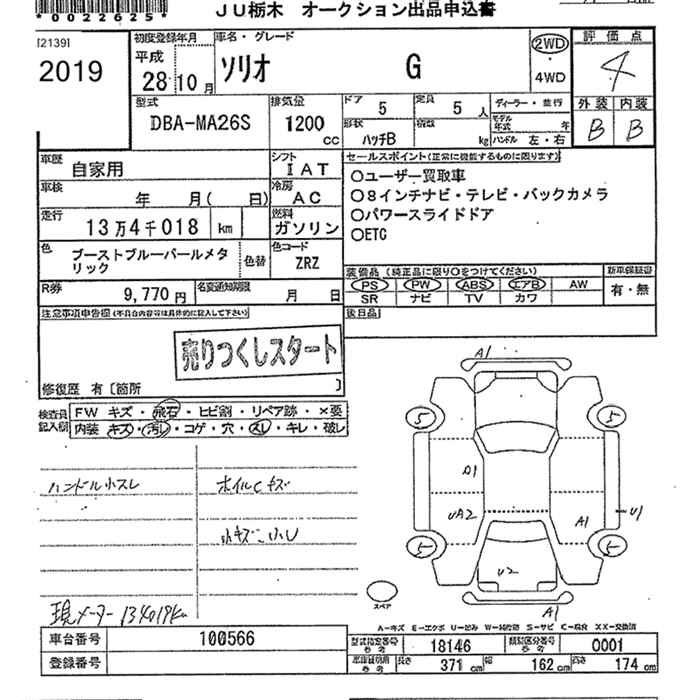 *0022625*
JU栃木 オークション出品申込書
[2139]
2019
初度登録年月
平成
28 10 月
車名・グレード
ソリオ G
2WD
・
4WD
評価点
4
外装 内装
B B
型式
DBA-MA26S
排気量
1200
cc
ドア
5
定員
5 人
形状
ハッチB
積載
kg
ディーラー・並行
モデル
年式 年
ハンドル 左・右
車歴
自家用
シフト
IAT
車検
年 月( 日)
冷房
AC
走行
13万4千018 km
燃料
ガソリン
色
ブーストブルーパールメタ
リック
色替
色コード
ZRZ
R券
9,770 円
名変通知期限
月 日
セールスポイント(正常に機能するものに限ります)
○ユーザー買取車
○8インチナビ・テレビ・バックカメラ
○パワースライドドア
○ETC
装備品 (純正品に限り○をつけてください)
PS PW ABS エアB AW
SR ナビ TV カワ
新車保証書
有・無
後日品
注意事項申告欄(不具合内容等は具体的に記入して下さい)
売りつくしスタート
修復歴 有〔箇所 〕
検査員
記入欄
FW キズ・飛石・ヒビ割・リペア跡・×要
内装 キズ・汚レ・コゲ・穴・スレ・キレ・破レ
ハンドル小スレ
ホイルCキズ
小キズ 小U
現メーター 134019km
A1
5
5
A1
UA2
A1
U1
5
5
U2
A1
スペア
A-キズ E-エクボ U-凹み W-補修跡 S-サビ C-腐食 XX-交換済
車台番号
100566
登録番号
型式指定番号
参考
18146
類別区分番号
参考
0001
車庫証明用
参考
長さ
371 cm
幅
162 cm
高さ
174 cm